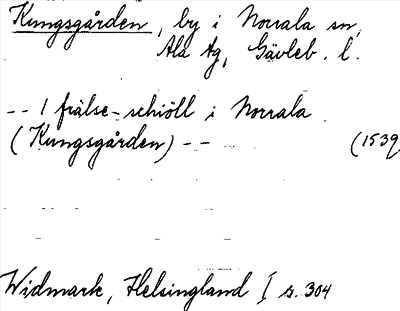 Kungsgården, by i Norrala sn,
Ala tg, Gävleb. l.
-- 1 frälse-schiöll i Norrala
(Kungsgården) --
(1539)
Widmark, Helsingland I s. 304